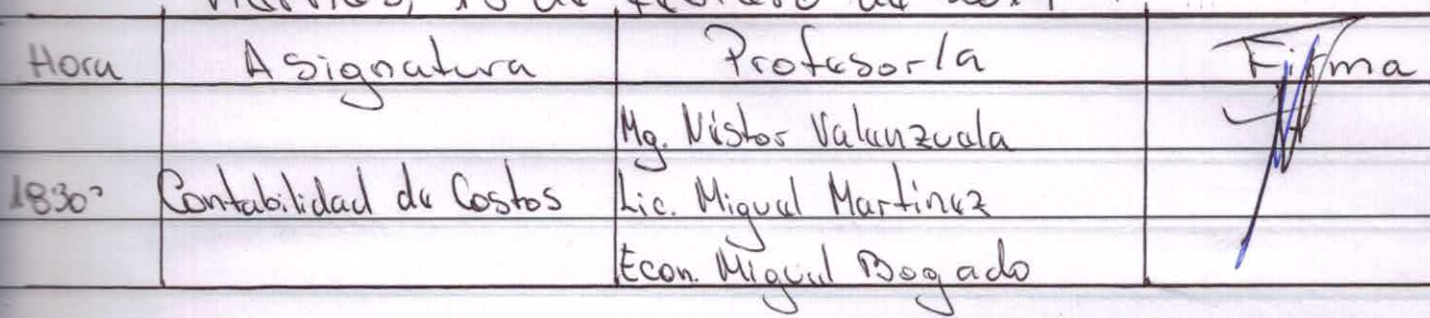 Hora Asignatura Profesor/a Firma
Mg. Néstor Valenzuela
18:30 Contabilidad de Costos Lic. Miguel Martinez
Econ. Miguel Bogado